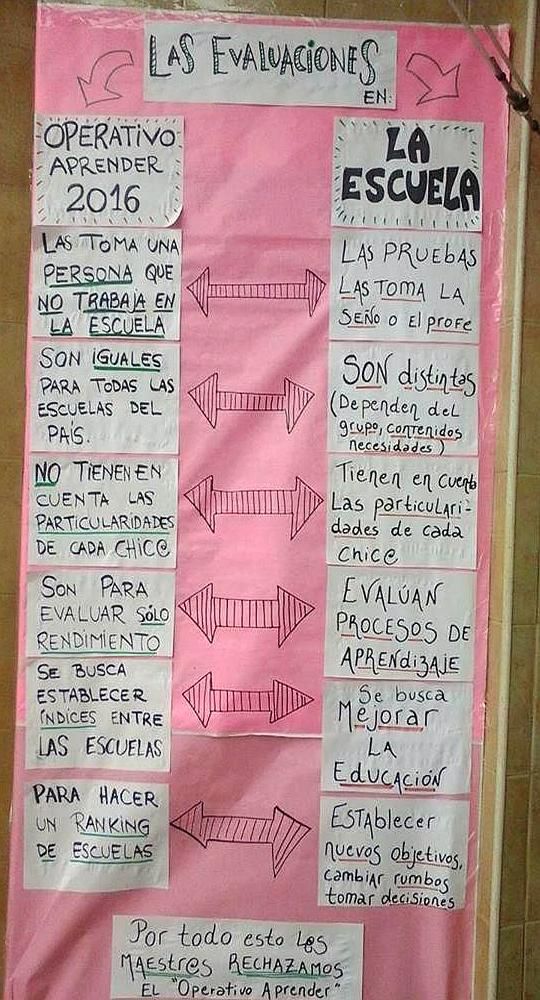 LAS EVALUACIONES
EN:
OPERATIVO
APRENDER
2016
LA
ESCUELA
LAS TOMA UNA
PERSONA QUE
NO TRABAJA EN
LA ESCUELA
LAS PRUEBAS
LAS TOMA LA
SEÑO O El profe
SON IGUALES
PARA TODAS LAS
ESCUELAS DEL
PAÍS.
SON distintas
(Dependen del
grupo, contenidos
necesidades)
NO TIENEN EN
CUENTA LAS
PARTICULARIDADES
DE CADA CHIC@
Tienen en cuenta
Las particulari-
dades de cada
chic@
SON PARA
EVALUAR SÓLO
RENDIMIENTO
EVALÚAN
PROCESOS DE
APRENDIZAJE
SE BUSCA
ESTABLECER
ÍNDICES ENTRE
LAS ESCUELAS
Se busca
Mejorar
LA
EDUCACIÓN
PARA HACER
UN RANKING
DE ESCUELAS
ESTAblecer
nuevos objetivos,
cambiar rumbos
tomar decisiones
Por todo esto L@s
MAESTR@S RECHAZAMOS
EL "Operativo Aprender"